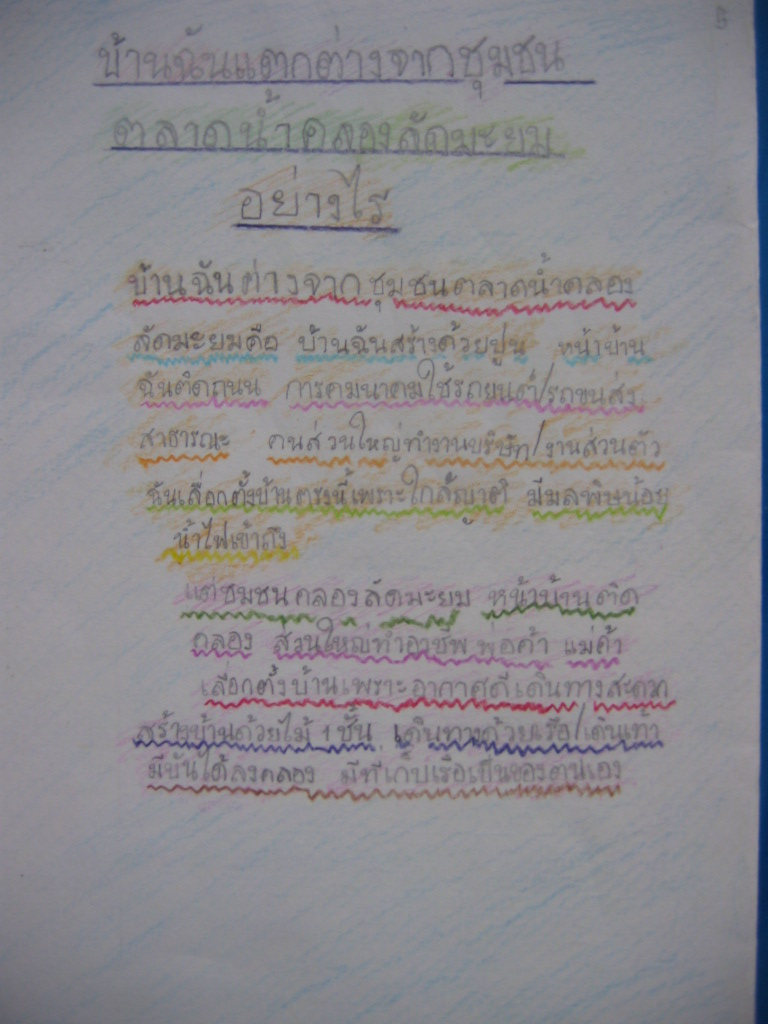 5
บ้านฉันแตกต่างจากชุมชน
ตลาดน้ำคลองลัดมะยม
อย่างไร
บ้านฉันต่างจากชุมชนตลาดน้ำคลอง
ลัดมะยมคือ บ้านฉันสร้างด้วยปูน หน้าบ้าน
ฉันติดถนน การคมนาคมใช้รถยนต์/รถขนส่ง
สาธารณะ คนส่วนใหญ่ทำงานบริษัท/งานส่วนตัว
ฉันเลือกตั้งบ้านตรงนี้เพราะใกล้ญาติ มีมลพิษน้อย
น้ำไฟเข้าถึง
แต่ชุมชนคลองลัดมะยม หน้าบ้านติด
คลอง ส่วนใหญ่ทำอาชีพ พ่อค้า แม่ค้า
เลือกตั้งบ้านเพราะอากาศดีเดินทางสะดวก
สร้างบ้านด้วยไม้ 1 ชั้น เดินทางด้วยเรือ/เดินเท้า
มีบันไดลงคลอง มีที่เก็บเรือเป็นของตนเอง